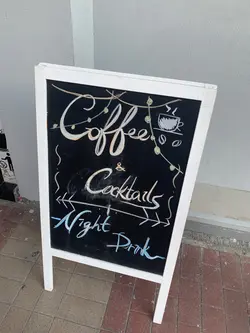 Coffee
&
Cocktails
Night
Drink